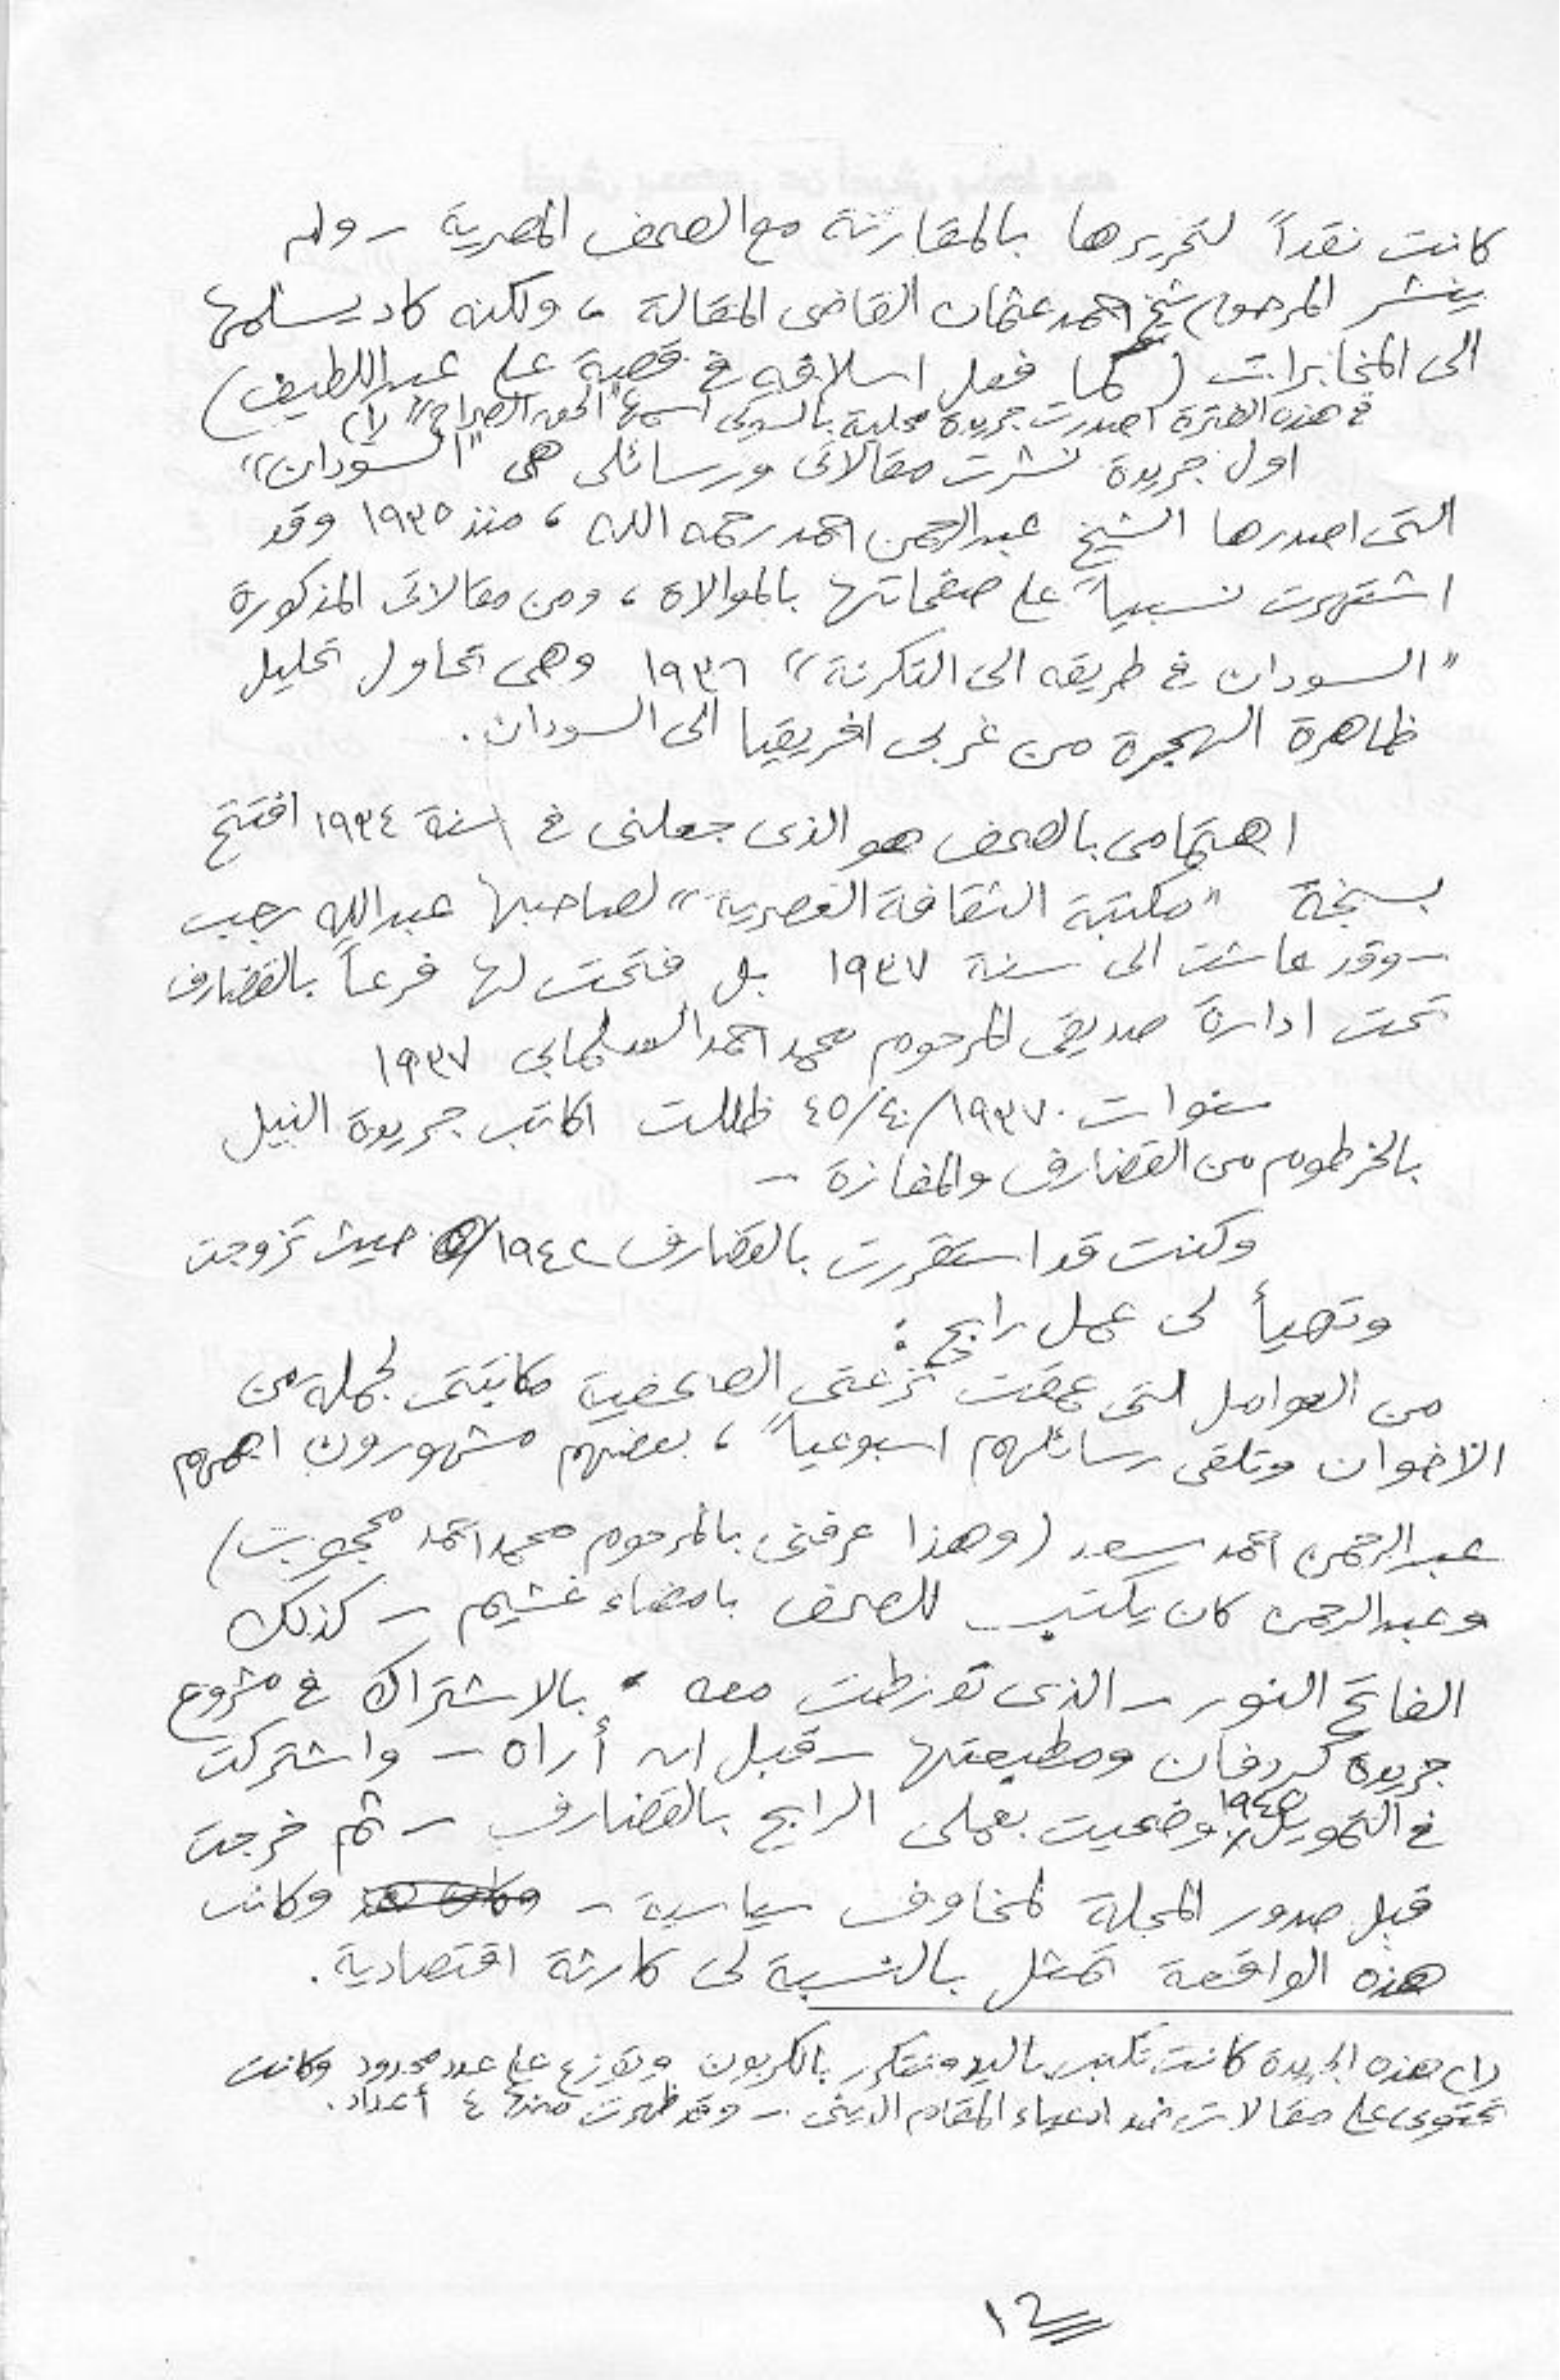 كانت نقداً لتحريرها بالمقارنة مع الصحف المصرية - ولم
ينشر المرحوم شيخ احمد عثمان القاضى المقالة ، ولكنه كاد يسلمها
الى المخابرات ( كما فعل اسلافه فى قصة على عبد اللطيف )
فى هذه الفترة اصدرت جريدة محلية بالسوكى اسمها "الحق الصراح" (١)
اول جريدة نشرت مقالاتى ورسائلى هى "السودان"
التى اصدرها الشيخ عبد الرحمن احمد رحمه الله ، منذ ١٩٣٥ وقد
اشتهرت نسبياً على صفحاتها بالموالاة ، ومن مقالاتى المذكورة
"السودان فى طريقه الى التكرنة" ١٩٣٦ وهى تحاول تحليل
ظاهرة الهجرة من غربى افريقيا الى السودان .
اهتمامى بالصحف هو الذى جعلنى فى سنة ١٩٣٤ افتتح
بسنجة "مكتبة الثقافة العصرية" لصاحبها عبد الله رجب
- وقد عاشت الى سنة ١٩٣٧ بل فتحت لها فرعاً بالقضارف
تحت ادارة صديقى المرحوم محمد احمد السلمابى ١٩٣٧
سنوات ١٩٣٧/٤٠/٤٥ ظللت اكاتب جريدة النيل
بالخرطوم من القضارف والمفازة -
وكنت قد استقررت بالقضارف ١٩٤٢ حيث تزوجت
وتهيأ لى عمل رابح :
من العوامل التى عمقت نزعتى الصحفية مكاتبتى لجملة من
الاخوان وتلقى رسائلهم اسبوعياً ، بعضهم مشهورون اهمهم
عبد الرحمن احمد سعد ( وهذا عرفنى بالمرحوم محمد احمد محجوب )
وعبد الرحمن كان يكتب للصحف بامضاء غشيم - كذلك
الفاتح النور - الذى تورطت معه بالاشتراك فى مشروع
جريدة كردفان ومطبعتها - قبل ان أراه - واشتركت
فى التمويل وضحيت بعملى الرابح بالقضارف - ثم خرجت
قبل صدور المجلة لمخاوف سياسية - وكانت
هذه الواقعة تمثل بالنسبة لى كارثة اقتصادية .
(١) هذه الجريدة كانت تكتب باليد وتتكرر بالكربون وتوزع على عدد محدود وكانت
تحتوى على مقالات ضد ادعياء المقام الدينى - وقد ظهرت منها ٤ أعداد .
١٢